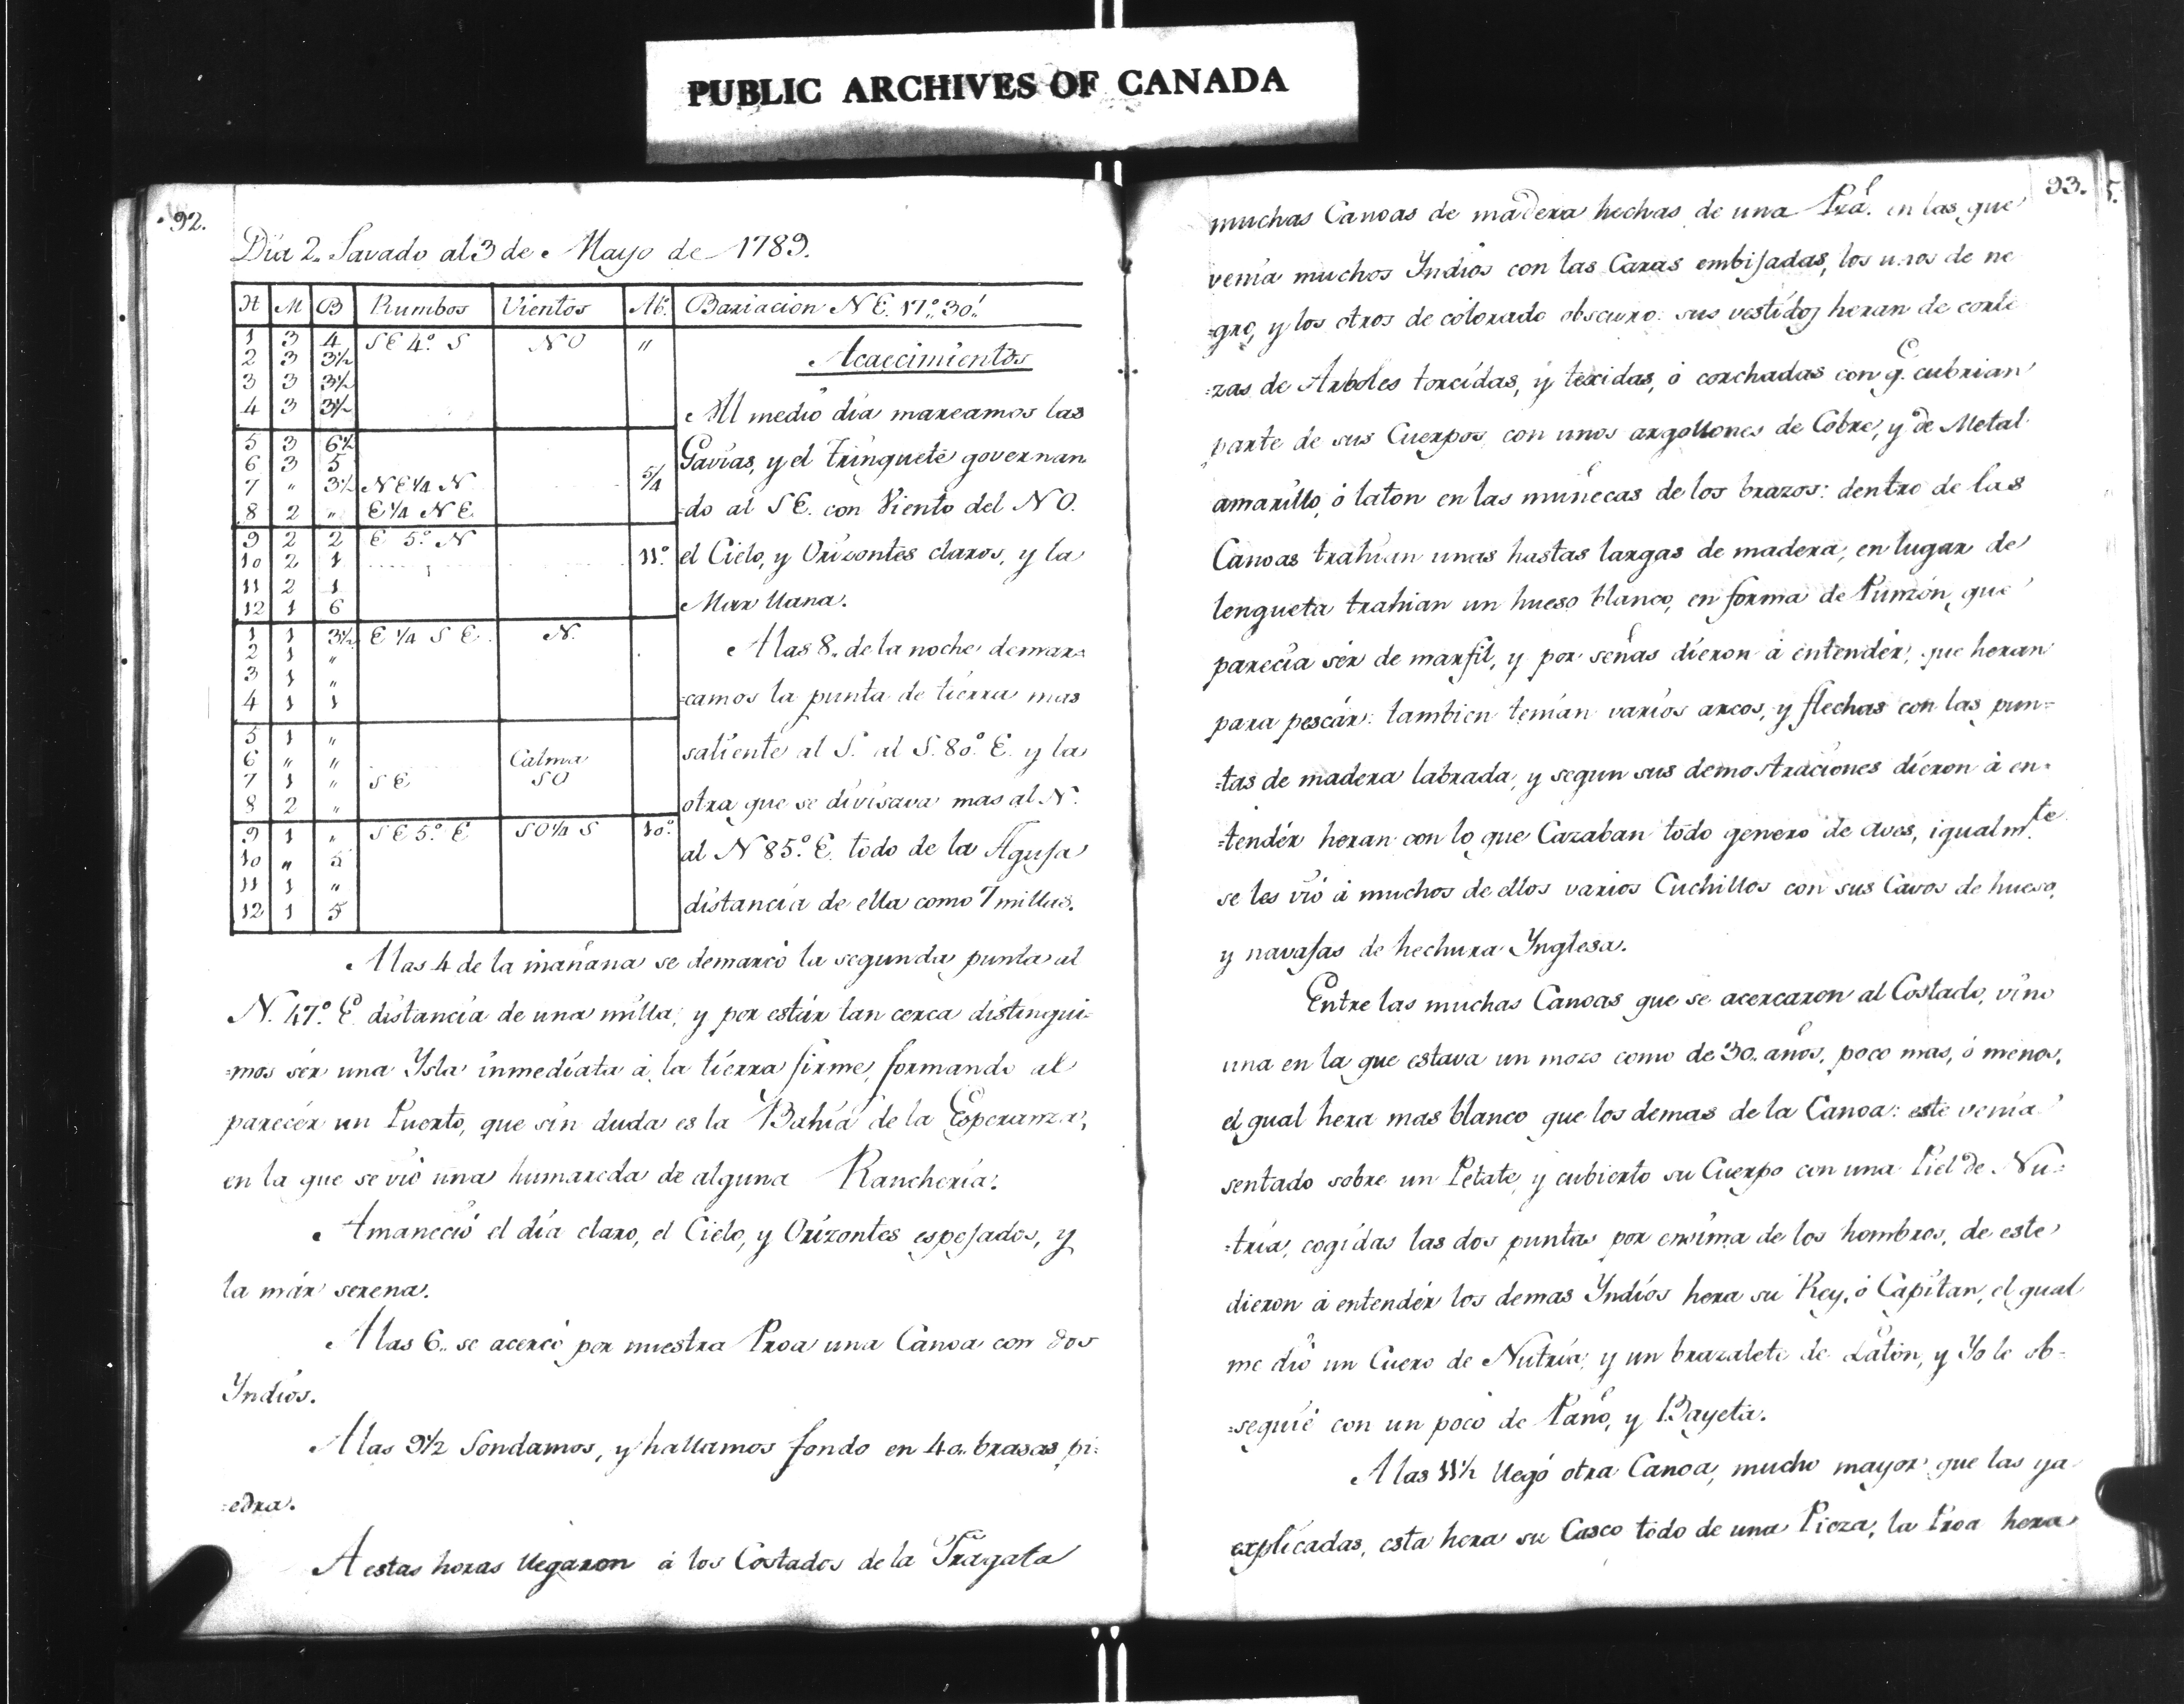 PUBLIC ARCHIVES OF CANADA
92.
Dia 2. Savado al 3 de Mayo de 1789.
H M B Rumbos Vientos Ab.º Bariacion N E. 17.º 30.'
1 3 4 S E 4.º S N O "
2 3 3½
3 3 3½
4 3 3½
5 3 6½
6 3 5
7 " 3½ N E ¼ N 5/4
8 2 " E ¼ N E.
9 2 2 E 5.º N
10 2 1 11.º
11 2 1
12 1 6
1 1 3½ E ¼ S E. N.
2 1 "
3 1 "
4 1 1
5 1 "
6 " " Calma
7 1 " S E S O
8 2 "
9 1 " S E 5.º E S O ¼ S 10.º
10 " 5
11 1 "
12 1 5
Acaecimientos
Al medio dia mareamos las
Gavias, y el trinquete governan
=do al S E. con Viento del N O.
el Cielo, y Orizontes claros, y la
Mar llana.
A las 8.. de la noche demar=
=camos la punta de tierra mas
saliente al S. al S. 80.º E. y la
otra que se divisava mas al N.
al N 85.º E. todo de la Aguja
distancia de ella como 7 millas.
A las 4 de la mañana se demarcó la segunda punta al
N. 47.º E. distancia de una milla; y por estár tan cerca distingui=
=mos ser una Ysla inmediata á la tierra firme, formando al
parecér un Puerto, que sin duda es la Bahia de la Esperanza,
en la que se vió una humareda de alguna Rancheria.
Amaneció el día claro, el Cielo, y Orizontes espejados, y
la már serena.
A las 6.. se acercó por nuestra Proa una Canoa con dos
Yndios.
A las 9½ Sondamos, y hallamos fondo en 40. brasas pi=
=edra.
A estas horas llegaron á los Costados de la Fragata
93.
5.
muchas Canoas de madera hechas de una Pzá. en las que
venía muchos Yndios con las Caras embijadas, los unos de ne
=gro, y los otros de colorado obscuro: sus vestidos heran de corte
=zas de Arboles torcídas, y texidas, ó corchadas con q.e cubrian
parte de sus Cuerpos con unos argollones de Cobre, y de Metal
amarillo, ó laton en las muñecas de los brazos: dentro de las
Canoas trahían unas hastas largas de madera, en lugar de
lengueta trahian un hueso blanco, en forma de Punzón que
parecía sér de marfil, y por señas dieron á entendér, que heran
para pescár: tambien tenían varios arcos, y flechas con las pun=
=tas de madera labrada, y segun sus demostraciones dieron á en=
=tendér heran con lo que Cazaban todo genero de aves, igualm.te
se les vió á muchos de ellos varios Cuchillos con sus Cavos de hueso,
y navajas de hechura Ynglesa.
Entre las muchas Canoas que se acercaron al Costado, vino
una en la que estava un mozo como de 30. años, poco mas, ó menos,
el qual hera mas blanco que los demas de la Canoa: este venía
sentado sobre un Petate, y cubierto su Cuerpo con una Piel de Nu=
=tria, cogidas las dos puntas por ensima de los hombros, de este
dieron á entendér los demas Yndios hera su Rey, ó Capitan, el qual
me dió un Cuero de Nutria, y un brazalete de Latón, y Yo le ob=
=sequié con un poco de Paño, y Bayeta.
A las 11½ llegó otra Canoa, mucho mayor que las ya
explicadas, esta hera su Casco todo de una Pieza, la Proa hera